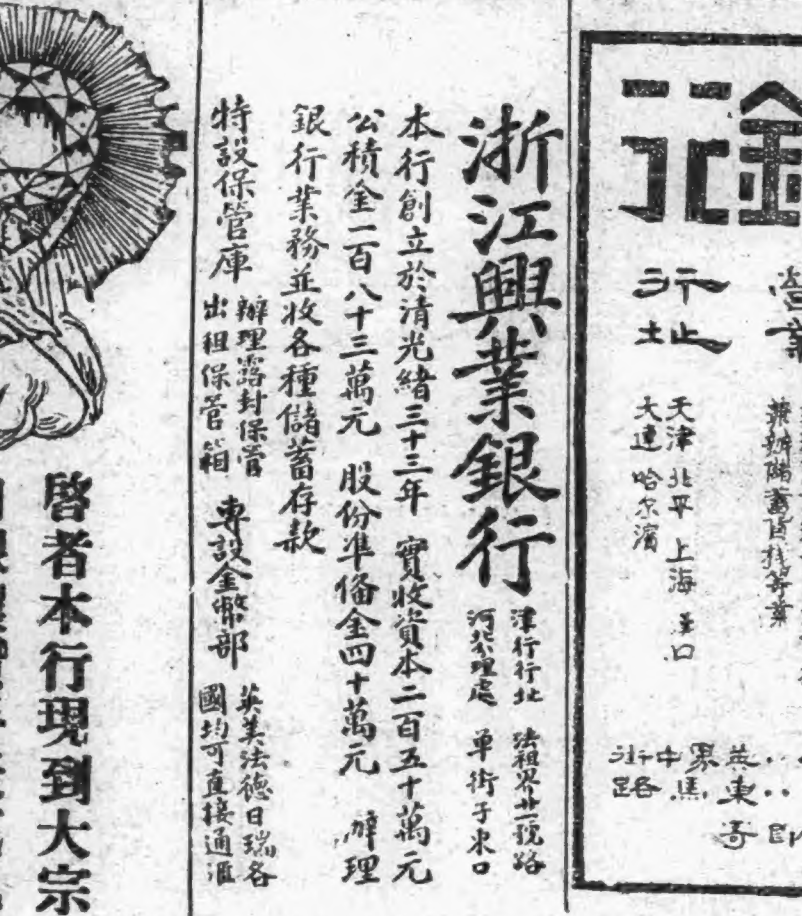 金
行
營業
兼辦儲蓄
行址
天津 北平 上海 漢口
大連 哈尔濱
英
界
中街
浙江興業銀行
津行行址 法租界廿一號路
河北分理處 單街子東口
本行創立於清光緒三十三年 實收資本二百五十萬元
公積金二百八十三萬元 股份準備金四十萬元 辦理
銀行業務並收各種儲蓄存款
特設保管庫
辦理露封保管
出租保管箱
專設金幣部
英美法德日瑞各
國均可直接通滙
啓者本行現到大宗